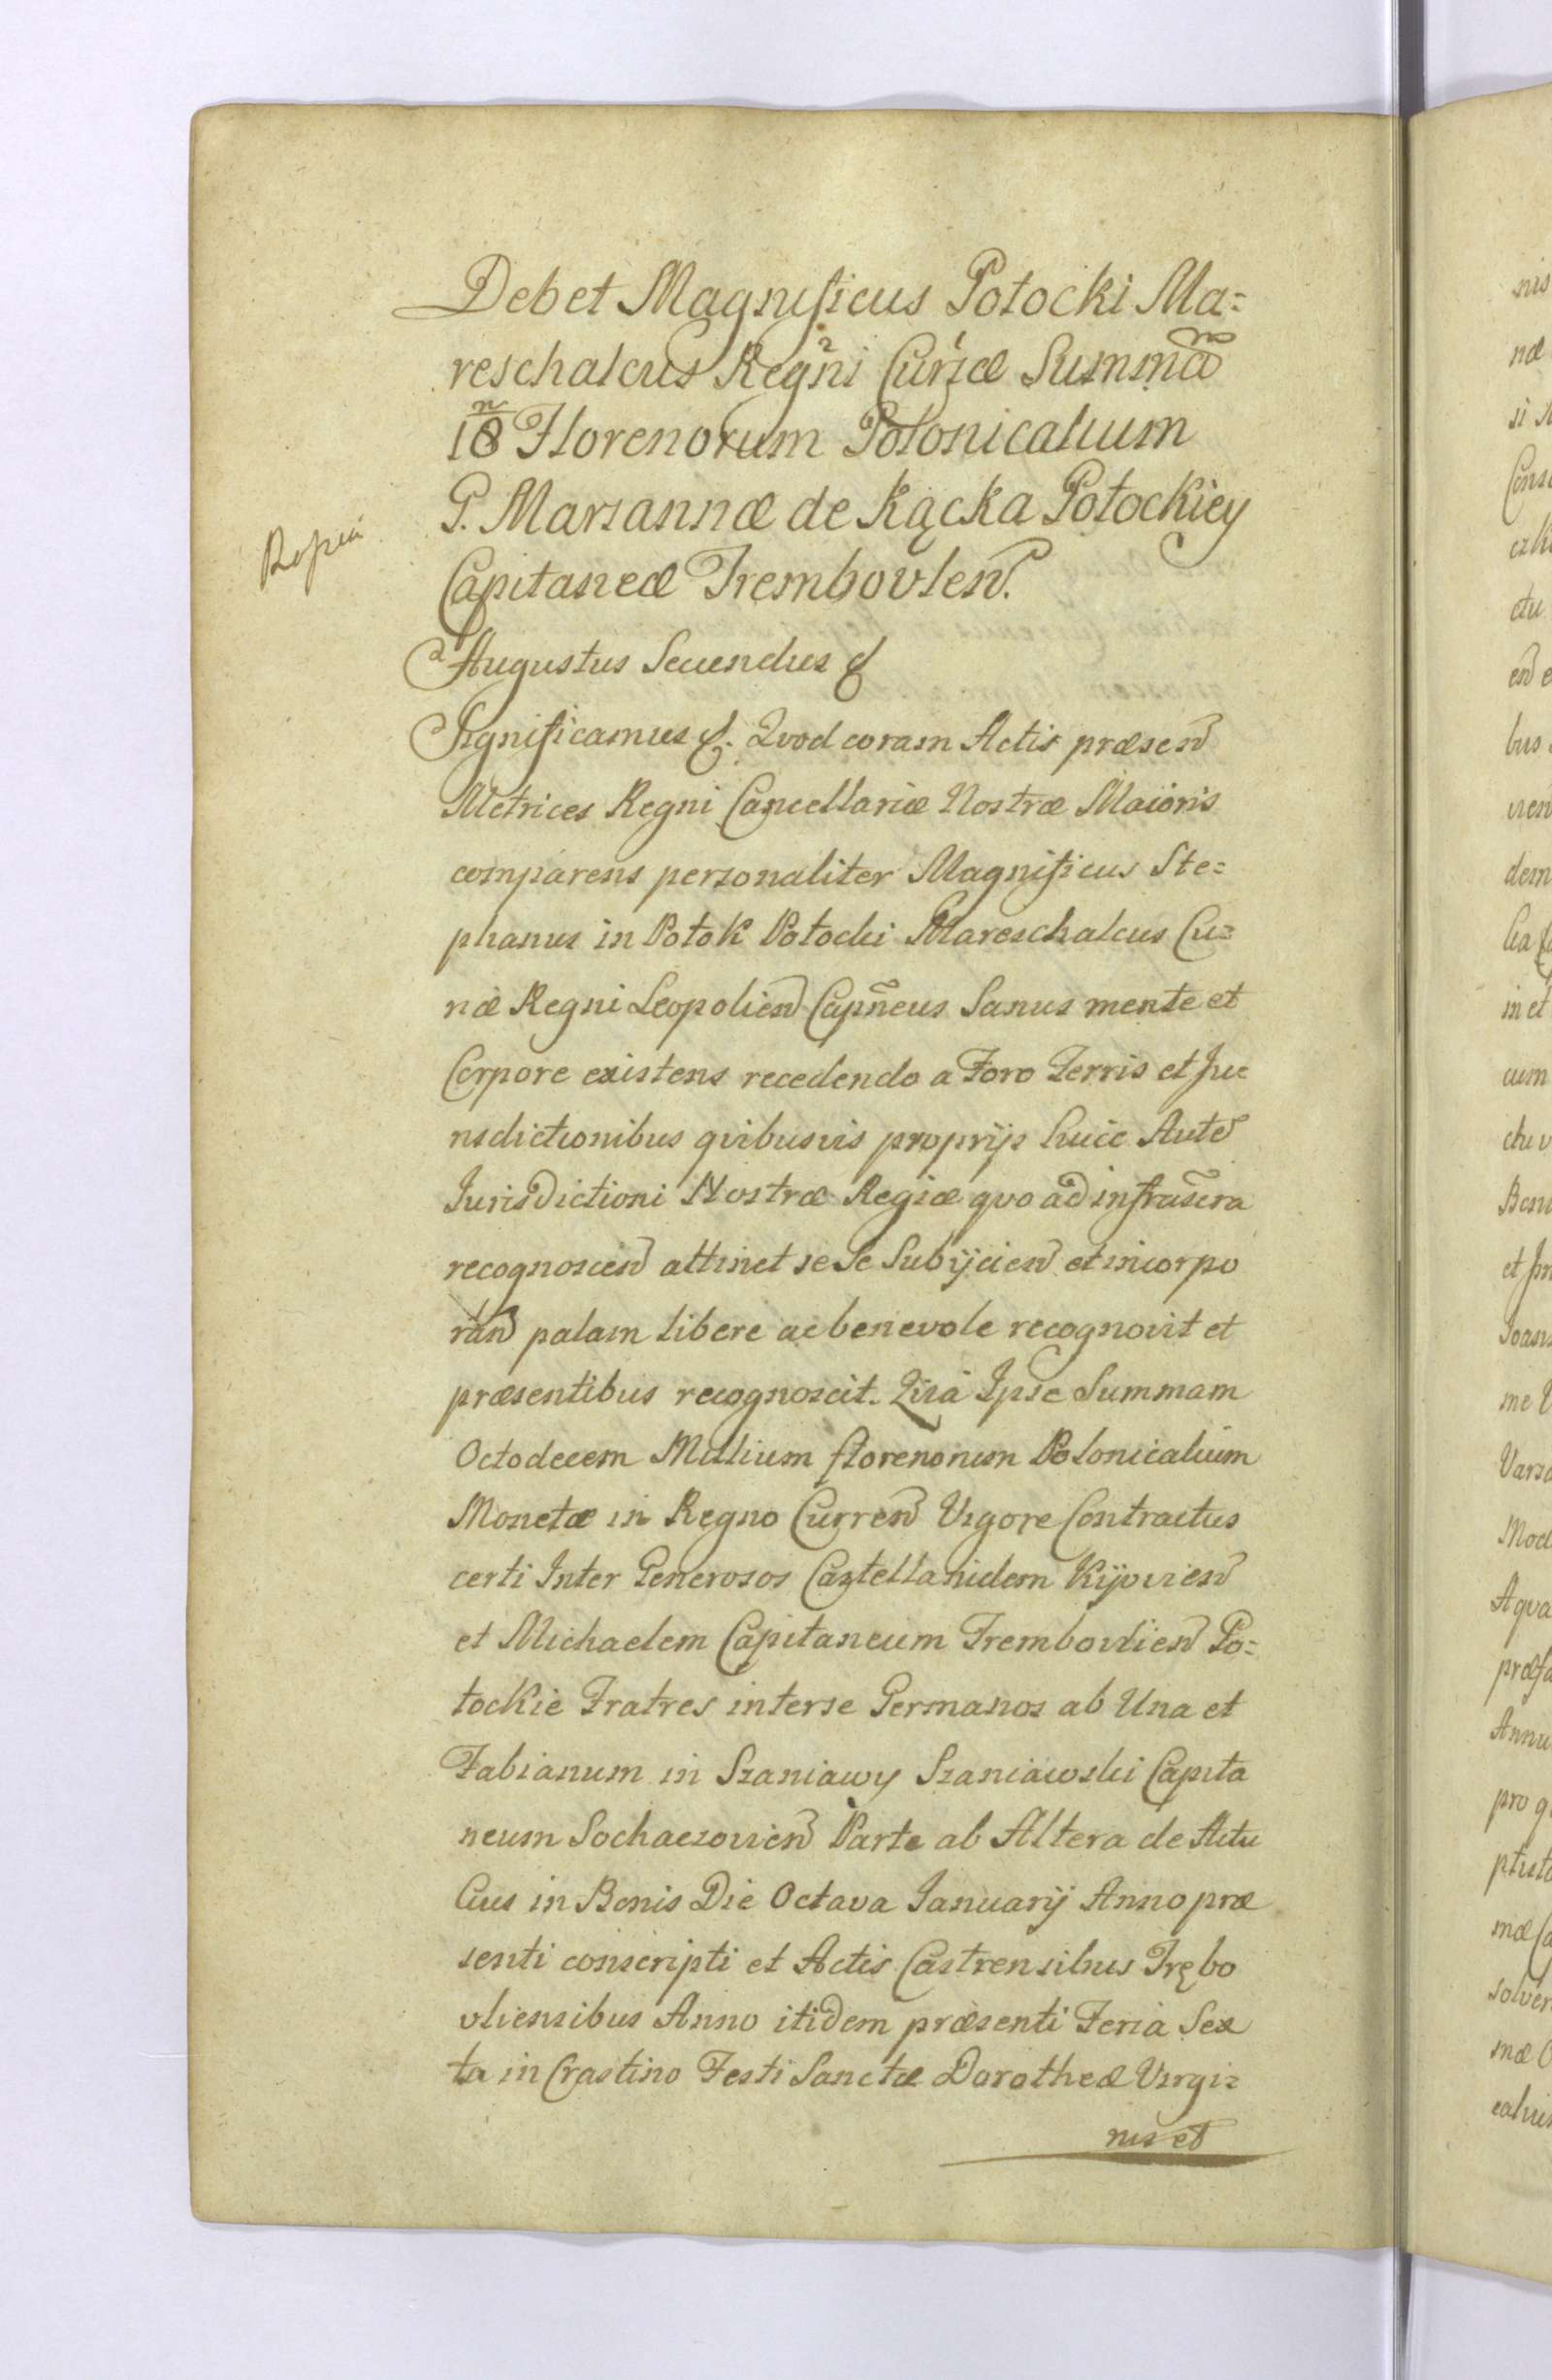 Debet Magnificus Potocki Ma=
reschalcus Regni Curiæ Summã
18 Florenorum Polonicalium
G. Mariannæ de Kącka Potockiey
Capitaneæ Trembovlen.
Augustus Secundus &
Significamus &. Quod coram Actis præsen
Metrices Regni Cancellariæ Nostræ Maioris
comparens personaliter Magnificus Ste=
phanus in Potok Potocki Mareschalcus Cu=
riæ Regni Leopolien Capñeus Sanus mente et
Corpore existens recedendo a Foro Terris et Ju
risdictionibus quibusvis proprijs huic Aute
Jurisdictioni Nostræ Regiæ quo ad infrascra
recognoscen attinet se Se Subijcien et incorpo
ran palam libere ac benevole recognovit et
præsentibus recognoscit. Quia Ipse Summam
Octodecem Millium florenorum Polonicalium
Monetæ in Regno Curren Vigore Contractus
certi Inter Generosos Castellanidem Kijovien
et Michaelem Capitaneum Trembowlien Po=
tockie Fratres inter se Germanos ab Una et
Fabianum in Szaniawy Szaniawski Capita
neum Sochaczovien Parte ab Altera de Actu
Cuius in Bonis Die Octava Januarij Anno præ
senti conscripti et Actis Castrensibus Trębo
vliensibus Anno itidem præsenti Feria Sex
ta in Crastino Festi Sanctæ Dorotheæ Virgi=
nis et
nis
næ
si